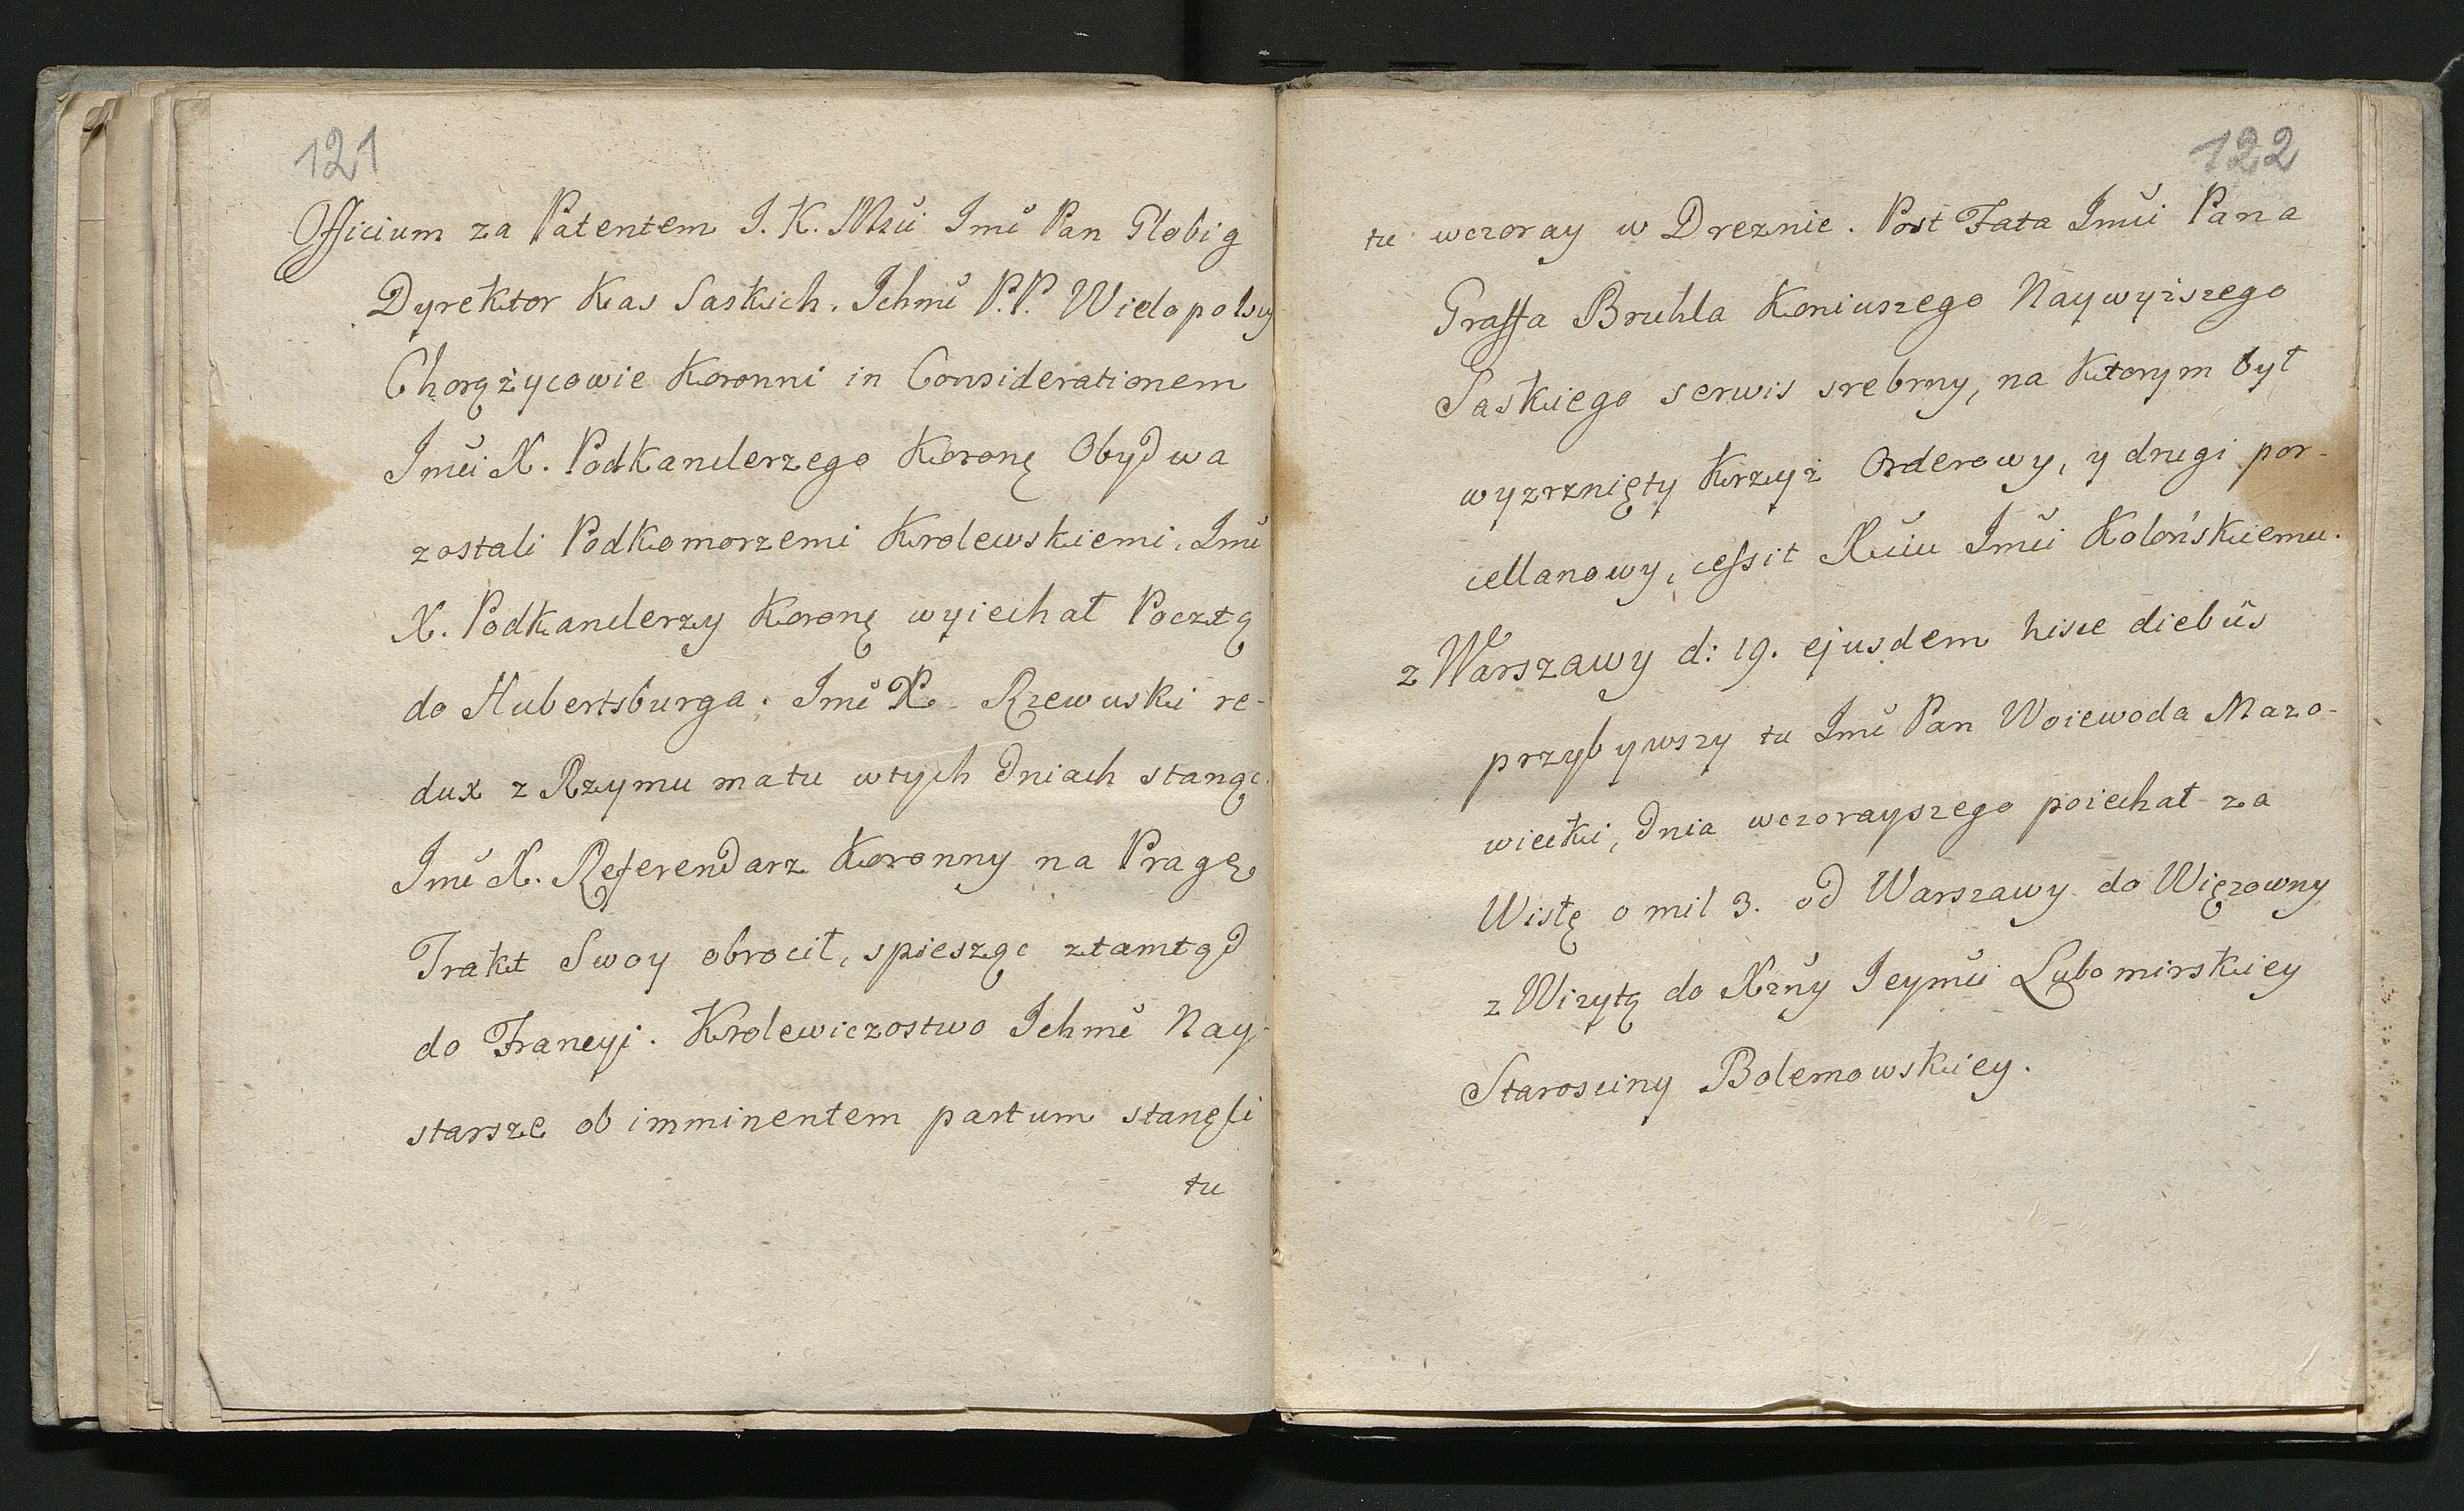 121
Officium za Patentem J. K. Msci Jmć Pan Globig
Dyrektor Kas Saskich. Ichmć P.P. Wielopolscy
Chorążycowie Koronni in Considerationem
Jmći X. Podkanclerzego Koronę Obydwa
zostali Podkomorzemi Krolewskiemi. Jmć
X. Podkanclerzy Koronę wyiechał Pocztą
do Hubertsburga. Jmć X. Rzewuski re-
dux z Rzymu matu wtych dniach stanąć.
Jmć X. Referendarz Koronny na Pragę
Trakt Swoy obrocił, spiesząc ztamtąd
do Francyi. Krolewiczostwo Ichmć Nay-
starsze ob imminentem partum stanęli
tu
122
tu wczoray w Dreznie. Post Fata Jmći Pana
Graffa Bruhla Koniuszego Naywyższego
Saskiego serwis srebrny, na Ktorym był
wyzrznięty Krzyż Orderowy, y drugi por-
cellanowy, cessit Xciu Jmći Kolońskiemu.
z Warszawy d: 19. ejusdem hisce diebus
przybywszy tu Jmć Pan Woiewoda Mazo-
wiecki, dnia wczorayszego poiechał za
Wisłę o mil 3. od Warszawy do Więzowny
z Wizytą do Xżny Jeymći Lubomirskiey
Starosciny Bolemowskiey.